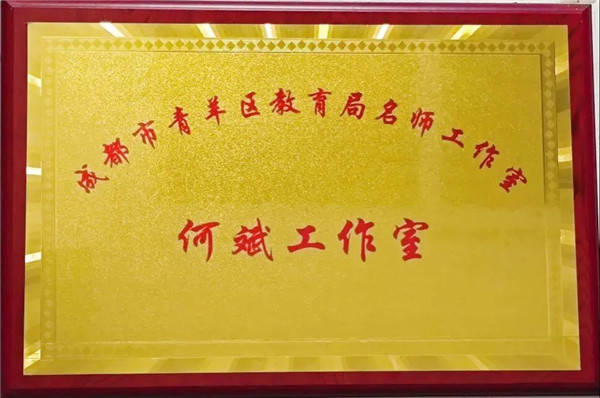 成都市青羊区教育局名师工作室
何斌工作室